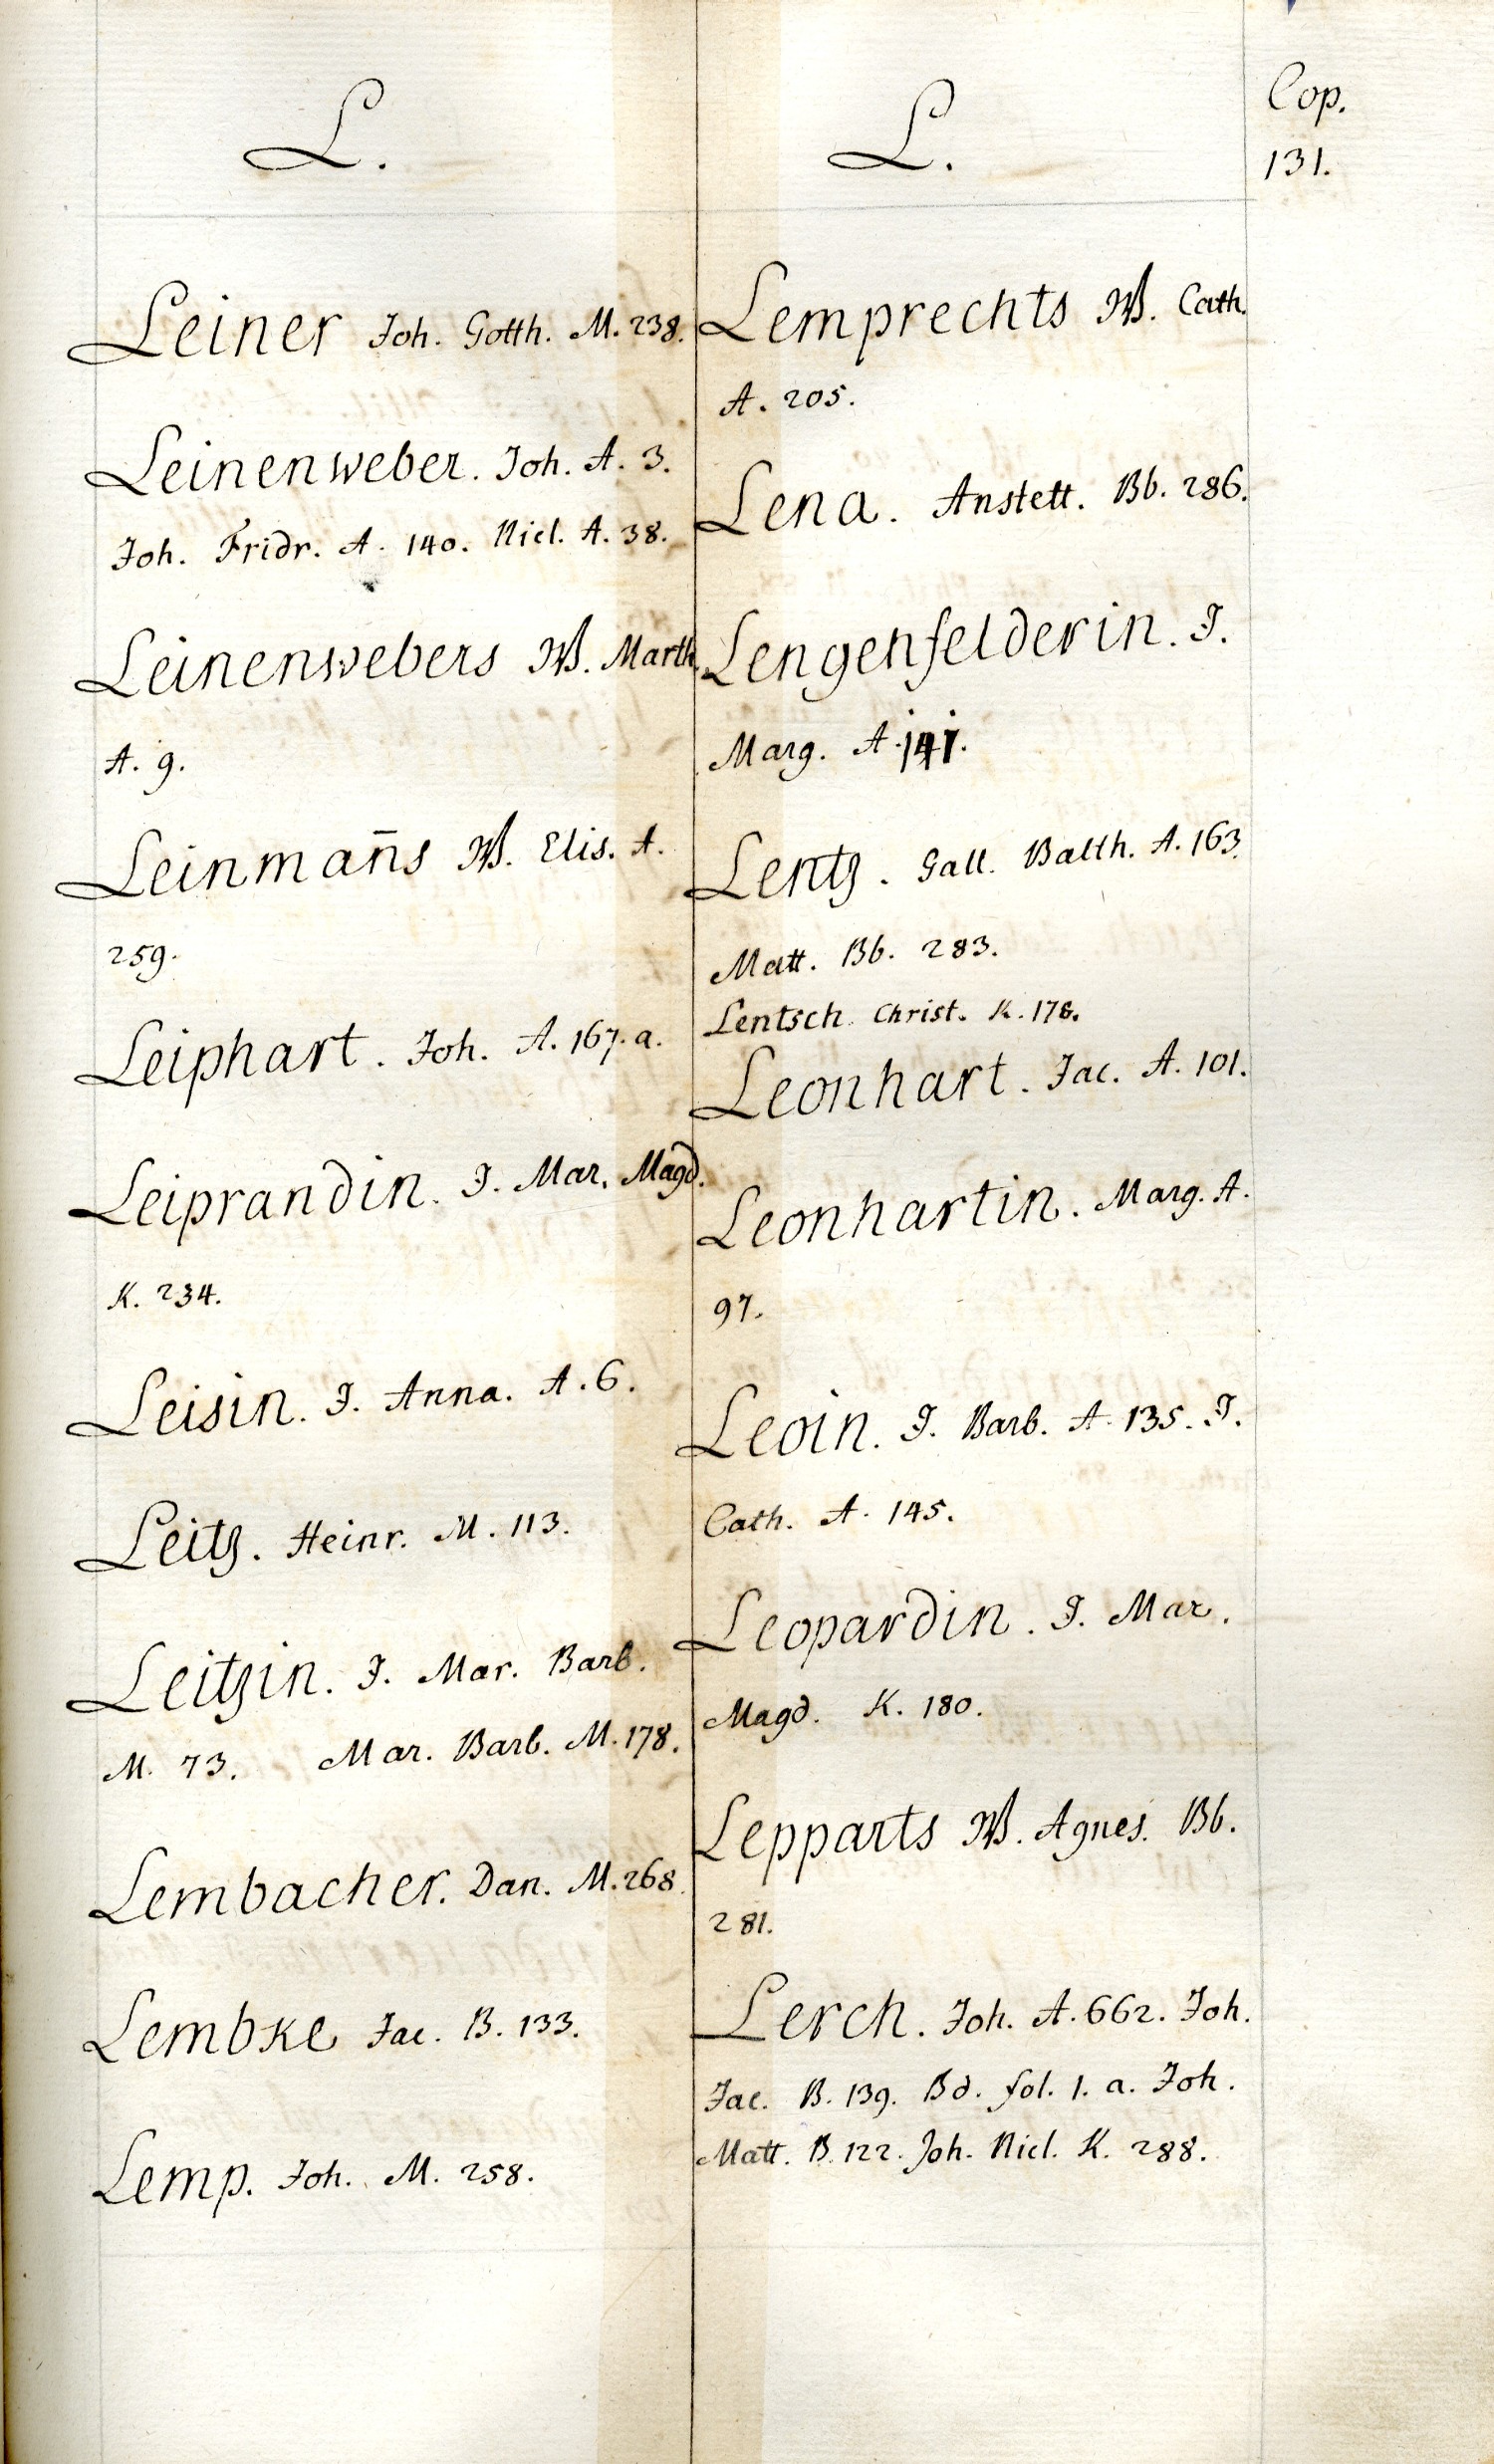 L.
Leiner Joh. Gotth. M. 238.
Leinenweber. Joh. A. 3.
Joh. Fridr. A. 140. Nicl. A. 38.
Leinenwebers W. Marth.
A. 9.
Leinman̄s W. Elis. A.
259.
Leiphart. Joh. A. 167. a.
Leiprandin. J. Mar. Magd.
K. 234.
Leisin. J. Anna. A. 6.
Leitz. Heinr. M. 113.
Leitzin. J. Mar. Barb.
M. 73. Mar. Barb. M. 178.
Lembacher. Dan. M. 268.
Lembke Jac. B. 133.
Lemp. Joh. M. 258.
L.
Lemprechts W. Cath.
A. 205.
Lena. Anstett. Bb. 286.
Lengenfelderin. J.
Marg. A. 141.
Lentz. Gall. Balth. A. 163.
Matt. Bb. 283.
Lentsch Christ. K. 178.
Leonhart. Jac. A. 101.
Leonhartin. Marg. A.
97.
Leoin. J. Barb. A. 135. J.
Cath. A. 145.
Leopardin. J. Mar.
Magd. K. 180.
Lepparts W. Agnes. Bb.
281.
Lerch. Joh. A. 662. Joh.
Jac. B. 139. Bd. fol. 1. a. Joh.
Matt. B. 122. Joh. Nicl. K. 288.
Cop.
131.